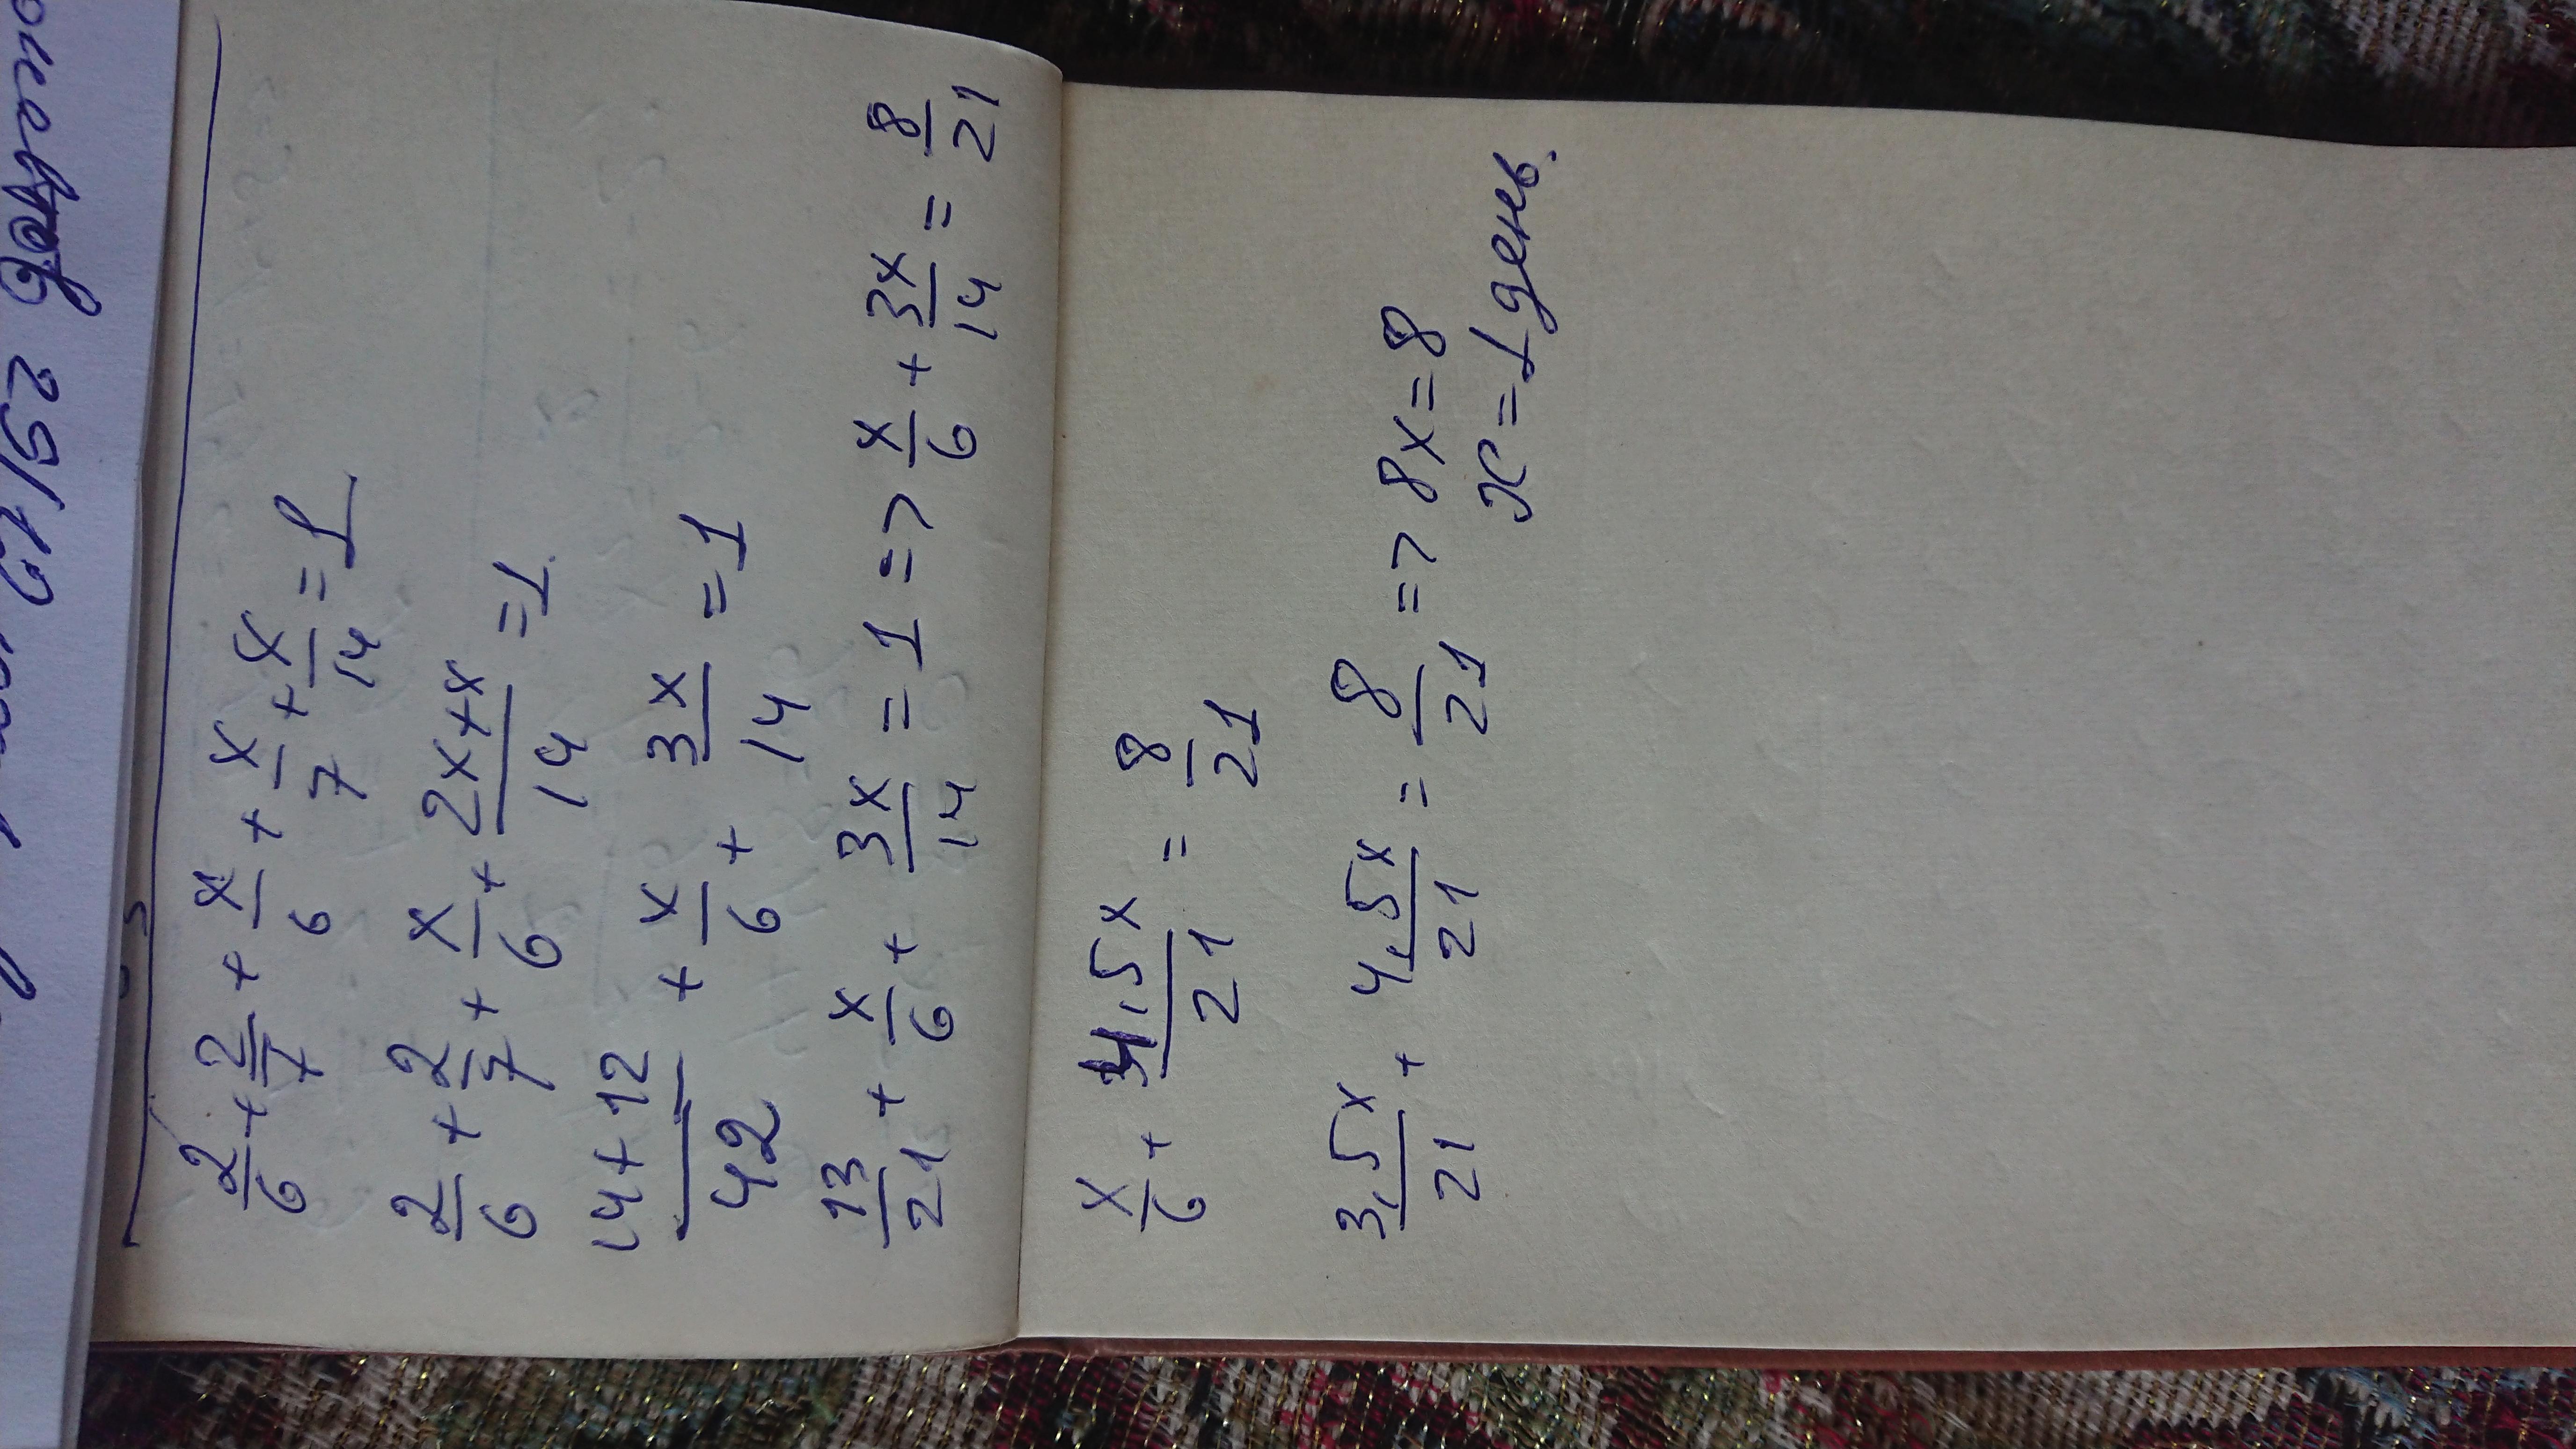 2/6 + 2/7 + x/6 + x/7 + x/14 = 1
2/6 + 2/7 + x/6 + 2x+x/14 = 1
14+12/42 + x/6 + 3x/14 = 1
13/21 + x/6 + 3x/14 = 1 => x/6 + 3x/14 = 8/21
x/6 + 4,5x/21 = 8/21
3,5x/21 + 4,5x/21 = 8/21 => 8x = 8
x = 1 день.